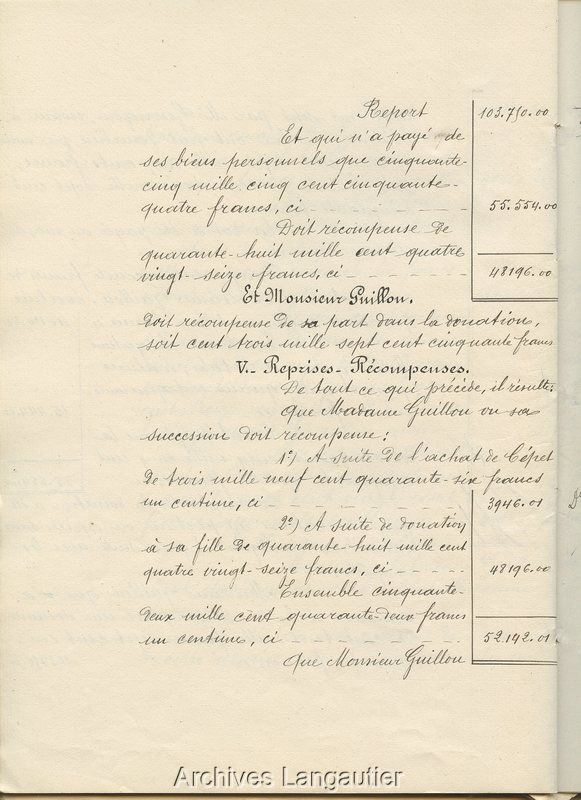 Report 103.750.00
Et qui n'a payé de
ses biens personnels que cinquante-
cinq mille cinq cent cinquante-
quatre francs, ci - - - - - - - 55.554.00
Doit récompense de
quarante-huit mille cent quatre
vingt-seize francs, ci - - - - - 48196.00
Et Monsieur Guillon.
Doit récompense de sa part dans la donation,
soit cent trois mille sept cent cinquante francs
V.- Reprises- Récompenses.
De tout ce qui précède, il résulte:
Que Madame Guillon ou sa
succession doit récompense:
1º) A suite de l'achat de Cépet
De trois mille neuf cent quarante-six francs
un centime, ci - - - - - - - - 3946.01
2º) A suite de donation
à sa fille de quarante-huit mille cent
quatre vingt-seize francs, ci - - - - 48196.00
Ensemble cinquante-
deux mille cent quarante-deux francs
un centime, ci - - - - - - - - 52.142.01
Que Monsieur Guillon
Archives Langautier